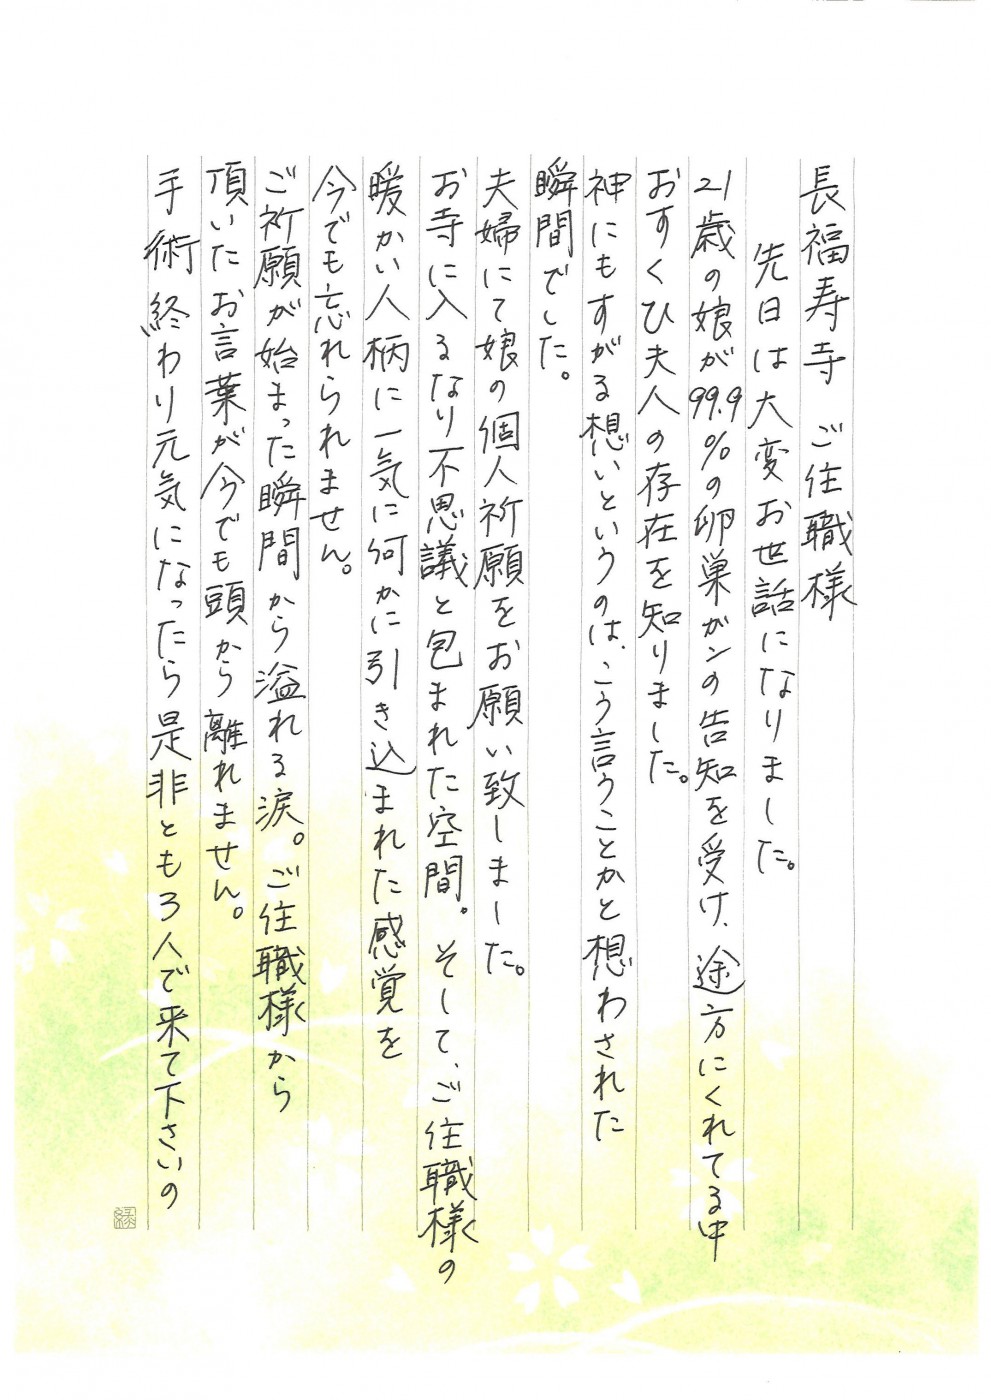 長福寿寺 ご住職様
先日は大変お世話になりました。
21歳の娘が99.9%の卵巣ガンの告知を受け、途方にくれてる中
おすくひ夫人の存在を知りました。
神にもすがる想いというのは、こう言うことかと想わされた
瞬間でした。
夫婦にて娘の個人祈願をお願い致しました。
お寺に入るなり不思議と包まれた空間。そして、ご住職様の
暖かい人柄に一気に何かに引き込まれた感覚を
今でも忘れられません。
ご祈願が始まった瞬間から溢れる涙。ご住職様から
頂いたお言葉が今でも頭から離れません。
手術終わり元気になったら是非とも3人で来て下さいの
縁